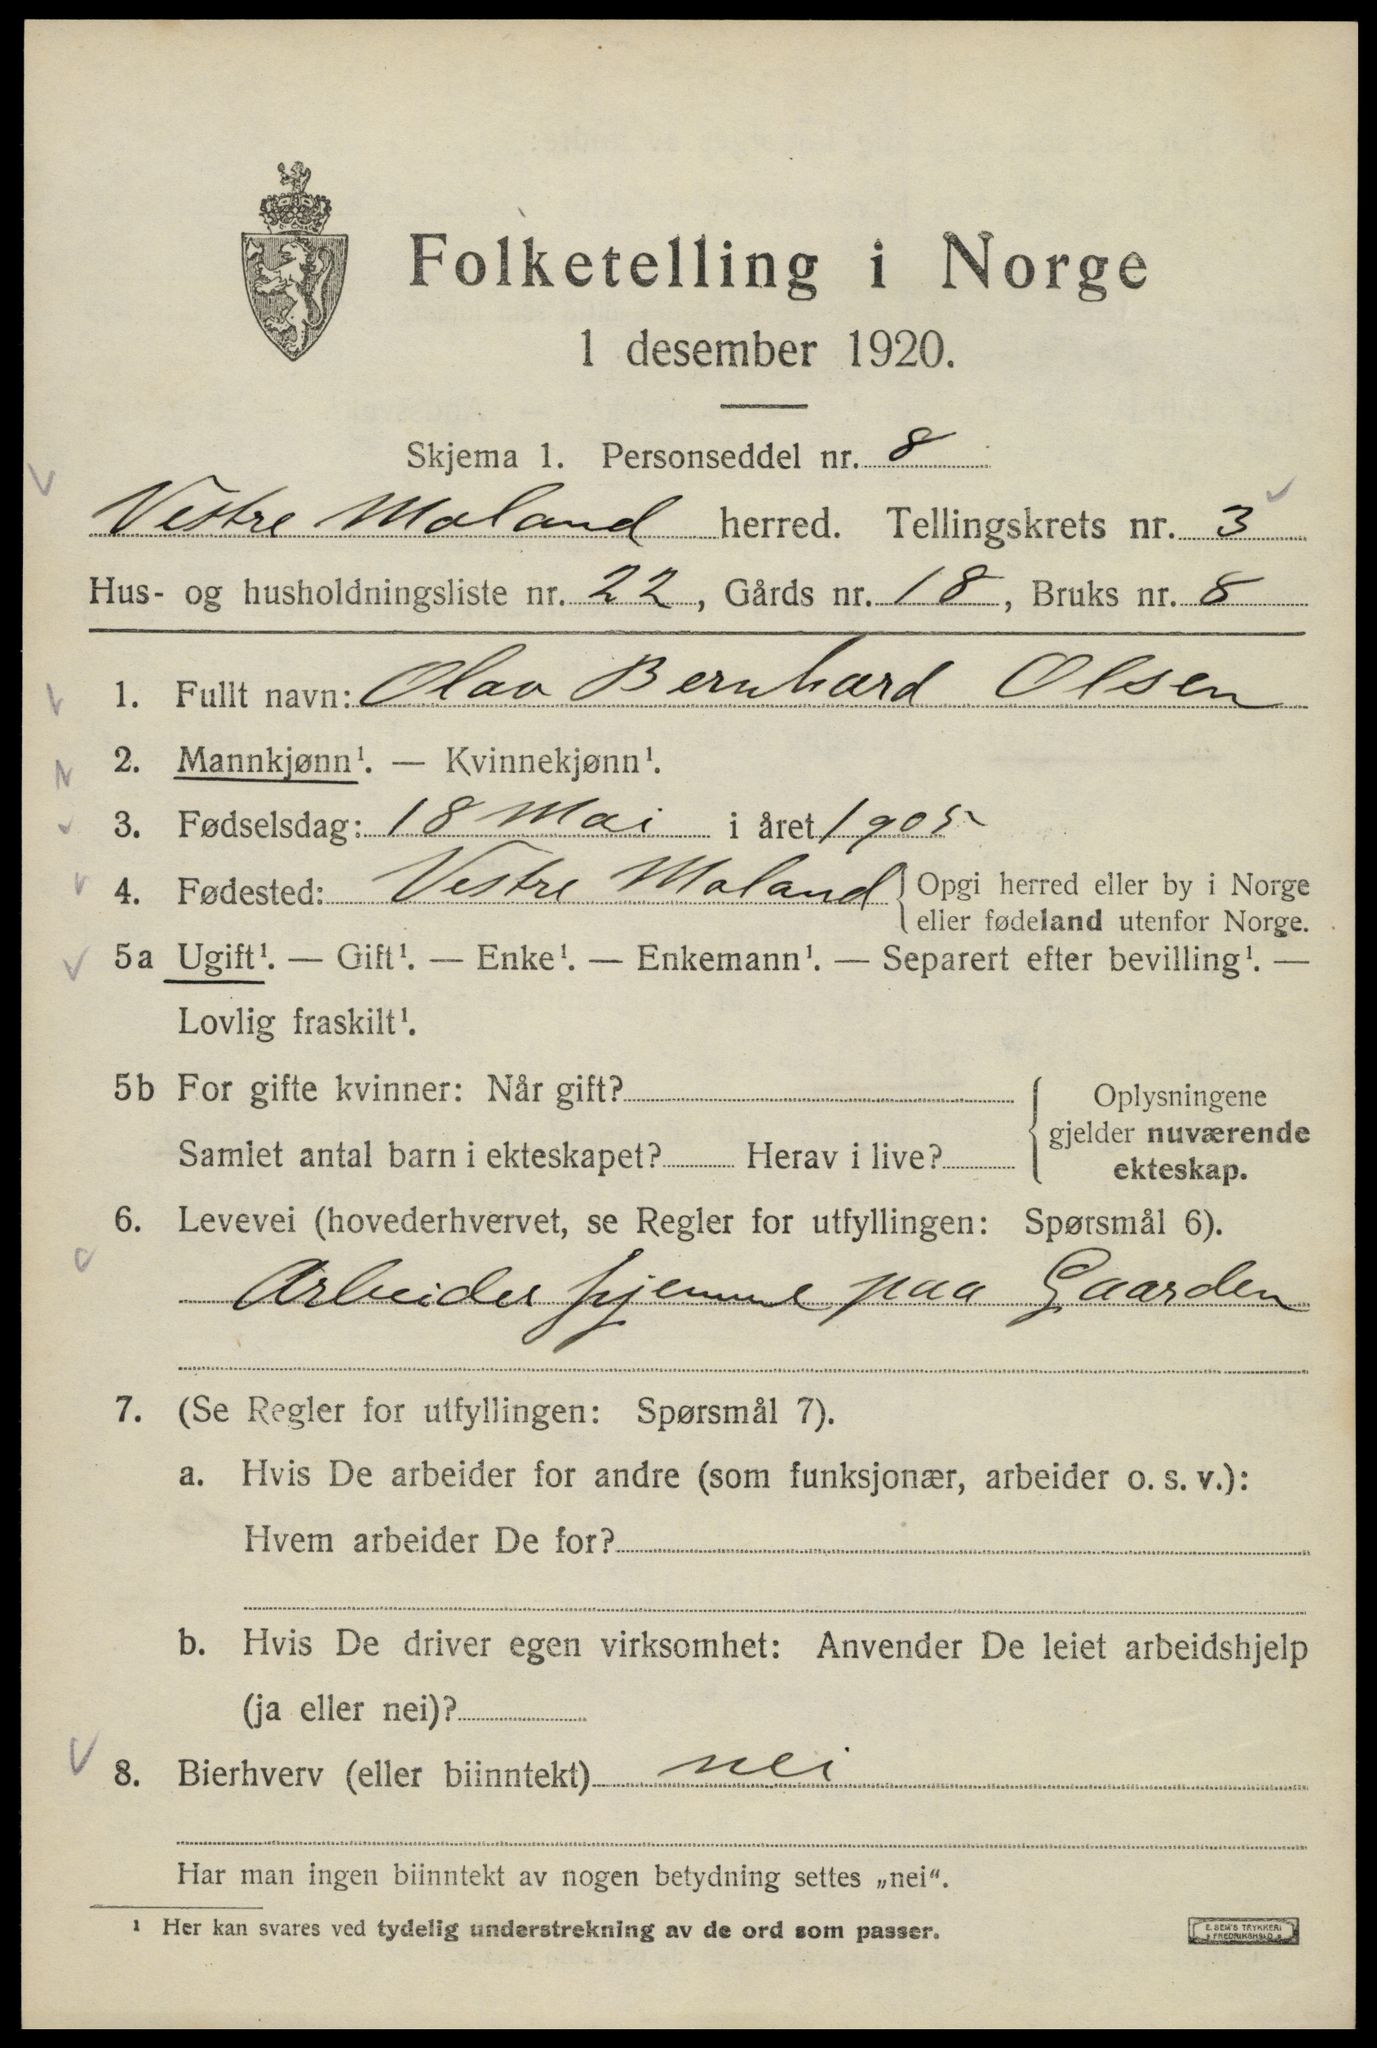 Folketelling i Norge
1 desember 1920.
Skjema 1. Personseddel nr. 8
Vestre Moland herred. Tellingskrets nr. 3
Hus- og husholdningsliste nr. 22, Gårds nr. 18, Bruks nr. 8
1. Fullt navn: Olav Bernhard Olsen
2. Mannkjønn¹. — Kvinnekjønn¹.
3. Fødselsdag: 18 Mai i året 1905
4. Fødested: Vestre Moland { Opgi herred eller by i Norge
eller fødeland utenfor Norge.
5a Ugift¹. — Gift¹. — Enke¹. — Enkemann¹. — Separert efter bevilling¹. —
Lovlig fraskilt¹.
5b For gifte kvinner: Når gift? { Oplysningene
gjelder nuværende
Samlet antal barn i ekteskapet? Herav i live?
ekteskap.
6. Levevei (hovederhvervet, se Regler for utfyllingen: Spørsmål 6).
Arbeider hjemme paa Gaarden
7. (Se Regler for utfyllingen: Spørsmål 7).
a. Hvis De arbeider for andre (som funksjonær, arbeider o. s. v.):
Hvem arbeider De for?
b. Hvis De driver egen virksomhet: Anvender De leiet arbeidshjelp
(ja eller nei)?
8. Bierhverv (eller biinntekt) nei
Har man ingen biinntekt av nogen betydning settes „nei“.
¹ Her kan svares ved tydelig understrekning av de ord som passer.
E. SEM'S TRYKKERI
FREDRIKSHALD